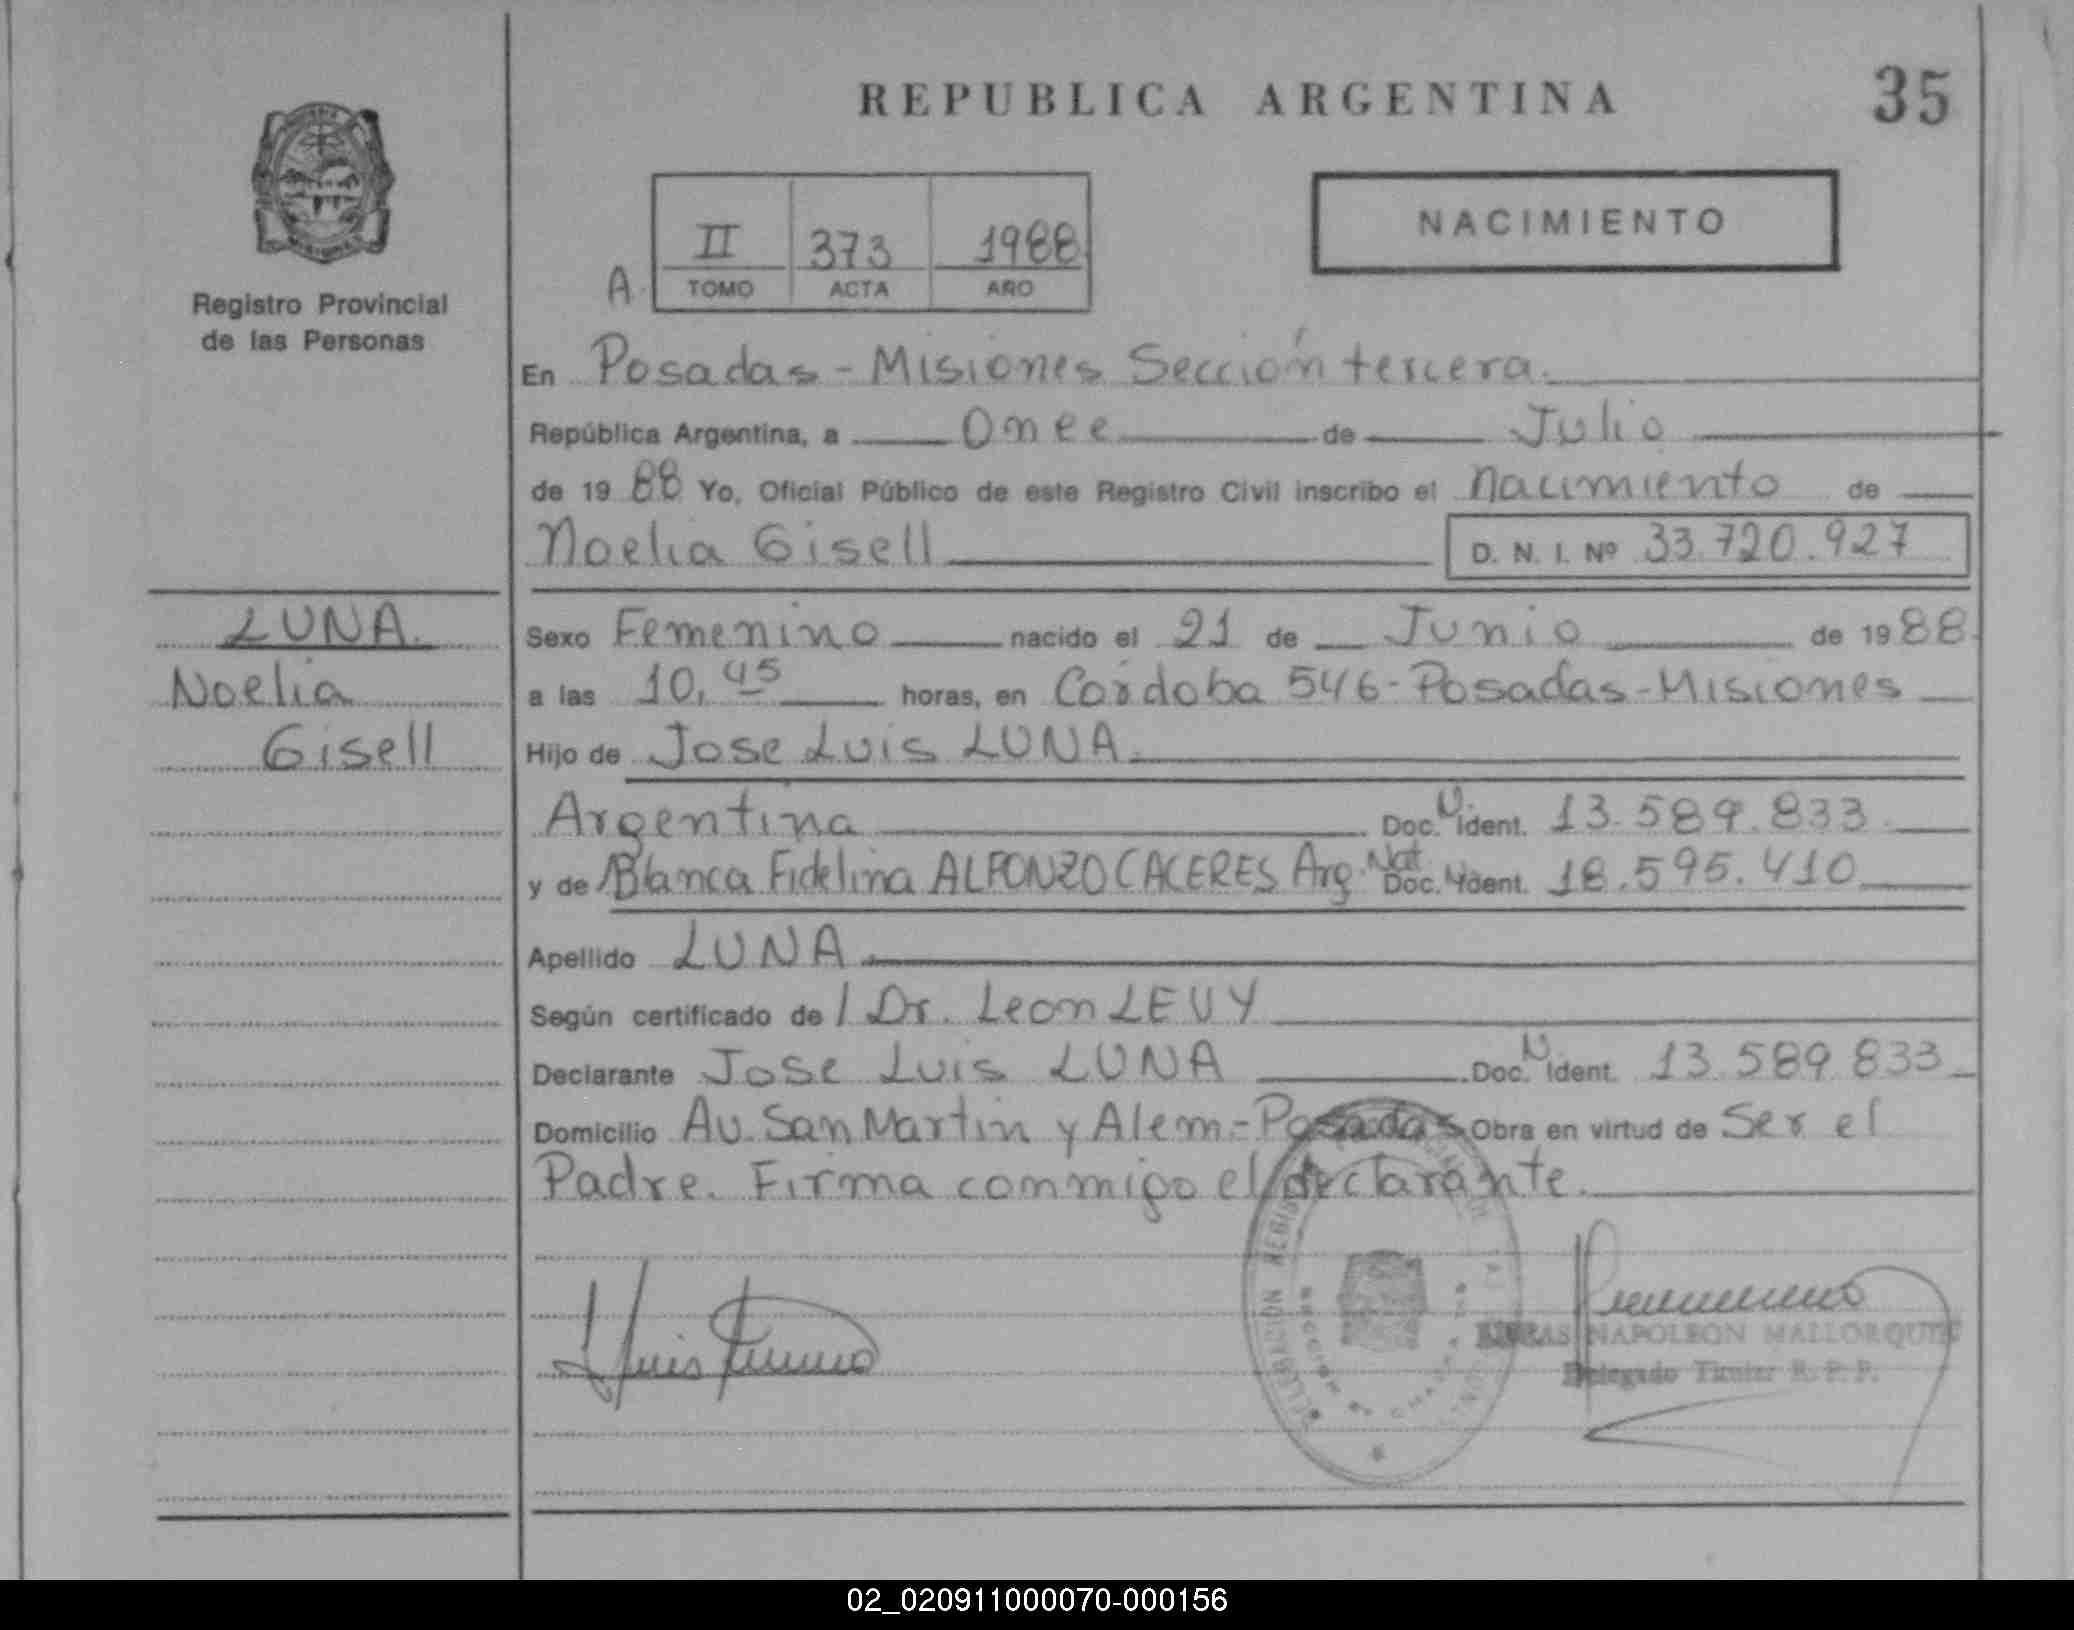 REPUBLICA ARGENTINA
35
NACIMIENTO
Registro Provincial
de las Personas
A
II 373 1988
TOMO ACTA AÑO
En Posadas - Misiones Sección tercera.
República Argentina, a Once de Julio
de 19 88 Yo, Oficial Público de este Registro Civil inscribo el nacimiento de
Noelia Gisell D. N. I. Nº 33.720.927
LUNA
Noelia
Gisell
Sexo Femenino nacido el 21 de Junio de 19 88
a las 10,45 horas, en Córdoba 546 - Posadas - Misiones
Hijo de Jose Luis LUNA
Argentina Doc. N. ident. 13.589.833
y de Blanca Fidelina ALFONZO CACERES Arg. Nat. Doc. ident. 18.595.410
Apellido LUNA
Según certificado de / Dr. Leon LEVY
Declarante Jose Luis LUNA Doc. N ident. 13.589.833
Domicilio Av. San Martin y Alem - Posadas Obra en virtud de Ser el
Padre. Firma conmigo el declarante.
NAPOLEON MALLORQUIN
Delegado Titular R. P. P.
02_020911000070-000156